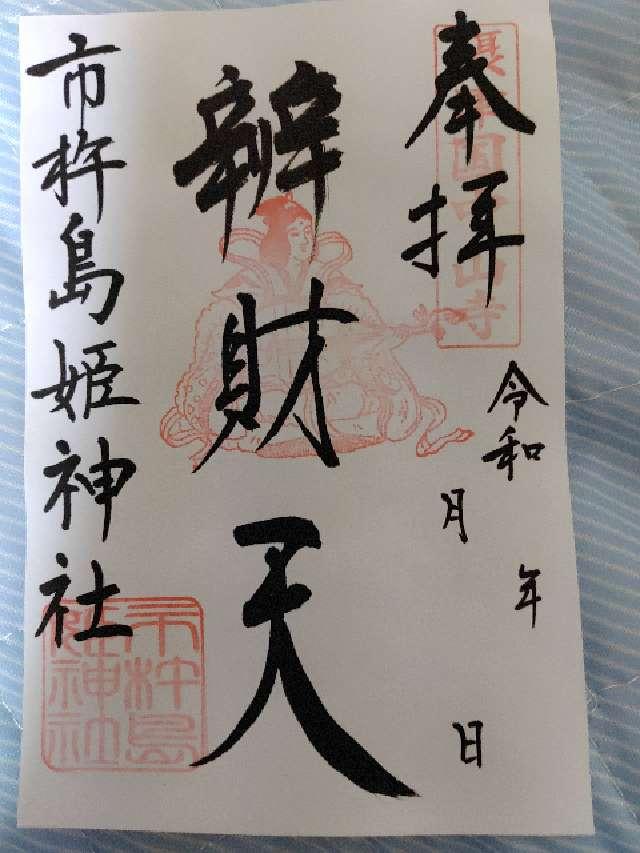 奉拝
摂津国中山寺
令和
年
月
日
辨財天
市杵島姫神社
市杵島姫神社